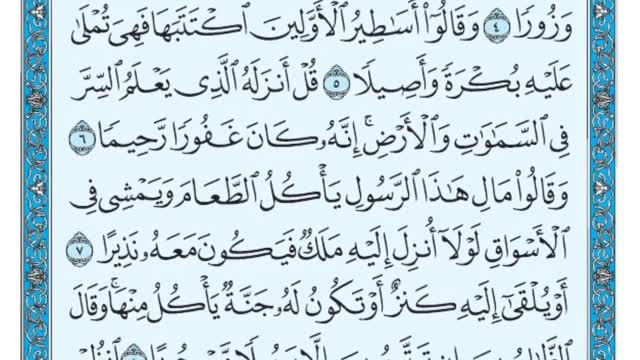 وَزُورًا ٤ وَقَالُوٓا۟ أَسَٰطِيرُ ٱلْأَوَّلِينَ ٱكْتَتَبَهَا فَهِىَ تُمْلَىٰ
عَلَيْهِ بُكْرَةً وَأَصِيلًا ٥ قُلْ أَنزَلَهُ ٱلَّذِى يَعْلَمُ ٱلسِّرَّ
فِى ٱلسَّمَٰوَٰتِ وَٱلْأَرْضِ ۚ إِنَّهُۥ كَانَ غَفُورًا رَّحِيمًا ٦
وَقَالُوا۟ مَالِ هَٰذَا ٱلرَّسُولِ يَأْكُلُ ٱلطَّعَامَ وَيَمْشِى فِى
ٱلْأَسْوَاقِ لَوْلَآ أُنزِلَ إِلَيْهِ مَلَكٌ فَيَكُونَ مَعَهُۥ نَذِيرًا ٧
أَوْ يُلْقَىٰٓ إِلَيْهِ كَنزٌ أَوْ تَكُونُ لَهُۥ جَنَّةٌ يَأْكُلُ مِنْهَا ۚ وَقَالَ